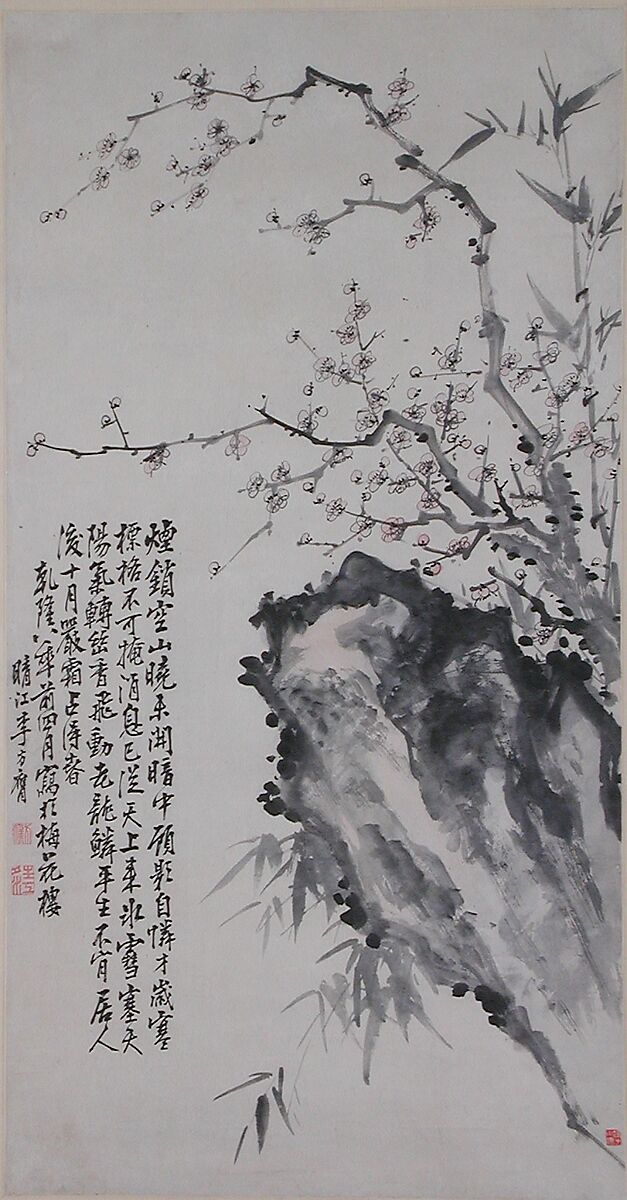 煙鎖空山曉未開暗中顧影自憐才歲寒
標格不可掩消息已從天上来冰雪塞天
陽氣轉香飛動老龍鱗平生不肯居人
後十月嚴霜占得春
乾隆八年前四月寫於梅花樓
晴江李方膺